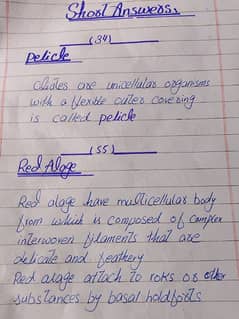 Short Answers:
(34)
Pelicle
Ciliates are unicellular organisms
with a flexible outer covering
is called pelicle
(55)
Red Alage
Red alage have multicellular body
from which is composed of complex
interwoven filaments that are
delicate and feathery
Red alage attach to roks or other
substances by basal holdfasts